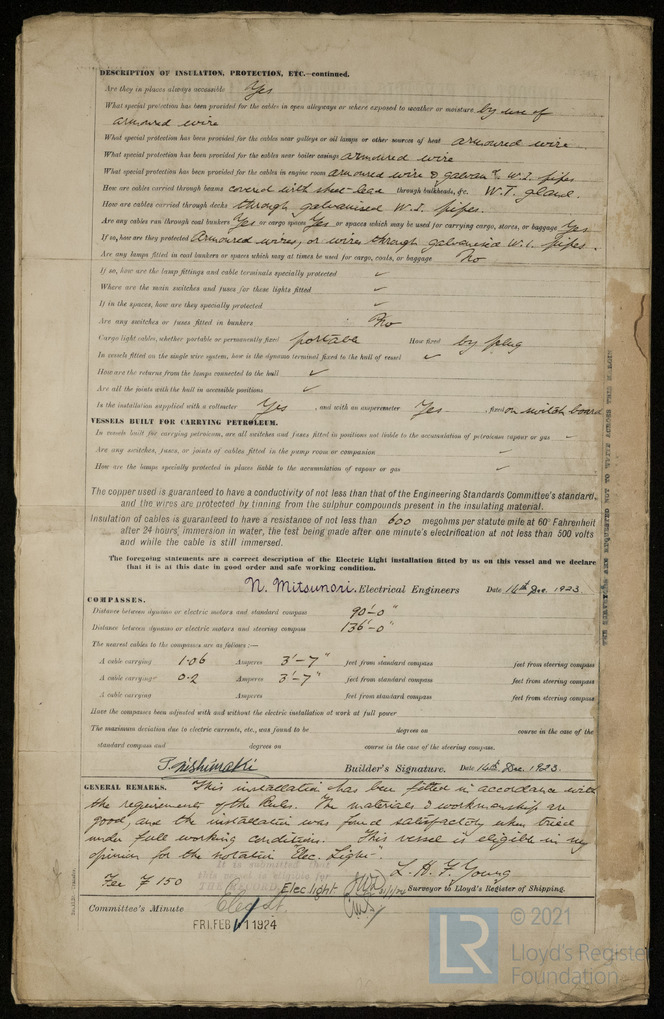 DESCRIPTION OF INSULATION, PROTECTION, ETC.—continued.
Are they in places always accessible Yes
What special protection has been provided for the cables in open alleyways or where exposed to weather or moisture by use of
armoured wire
What special protection has been provided for the cables near galleys or oil lamps or other sources of heat armoured wire
What special protection has been provided for the cables near boiler casings armoured wire
What special protection has been provided for the cables in engine room armoured wire & galvan'd W.I. pipes
How are cables carried through beams covered with sheet-lead through bulkheads, &c. W.T. gland.
How are cables carried through decks through galvanised W.I. pipes.
Are any cables run through coal bunkers Yes or cargo spaces Yes or spaces which may be used for carrying cargo, stores, or baggage Yes
If so, how are they protected Armoured wires, or wires through galvanised W.I. pipes.
Are any lamps fitted in coal bunkers or spaces which may at times be used for cargo, coals, or baggage No
If so, how are the lamp fittings and cable terminals specially protected ✓
Where are the main switches and fuses for these lights fitted ✓
If in the spaces, how are they specially protected ✓
Are any switches or fuses fitted in bunkers No
Cargo light cables, whether portable or permanently fixed portable How fixed by plug
In vessels fitted on the single wire system, how is the dynamo terminal fixed to the hull of vessel ✓
How are the returns from the lamps connected to the hull ✓
Are all the joints with the hull in accessible positions ✓
Is the installation supplied with a voltmeter Yes , and with an amperemeter Yes , fixed on switch board
VESSELS BUILT FOR CARRYING PETROLEUM.
In vessels built for carrying petroleum, are all switches and fuses fitted in positions not liable to the accumulation of petroleum vapour or gas
Are any switches, fuses, or joints of cables fitted in the pump room or companion ✓
How are the lamps specially protected in places liable to the accumulation of vapour or gas ✓
The copper used is guaranteed to have a conductivity of not less than that of the Engineering Standards Committee's standard,
and the wires are protected by tinning from the sulphur compounds present in the insulating material.
Insulation of cables is guaranteed to have a resistance of not less than 600 megohms per statute mile at 60° Fahrenheit
after 24 hours' immersion in water, the test being made after one minute's electrification at not less than 500 volts
and while the cable is still immersed.
The foregoing statements are a correct description of the Electric Light installation fitted by us on this vessel and we declare
that it is at this date in good order and safe working condition.
N. Mitsunori. Electrical Engineers Date 14th Dec. 1923
COMPASSES.
Distance between dynamo or electric motors and standard compass 90'-0"
Distance between dynamo or electric motors and steering compass 136'-0"
The nearest cables to the compasses are as follows:—
A cable carrying 1.06 Amperes 3'-7" feet from standard compass feet from steering compass
A cable carrying 0.2 Amperes 3'-7" feet from standard compass feet from steering compass
A cable carrying Amperes feet from standard compass feet from steering compass
Have the compasses been adjusted with and without the electric installation at work at full power
The maximum deviation due to electric currents, etc., was found to be degrees on course in the case of the
standard compass and degrees on course in the case of the steering compass.
T. Nishimaki Builder's Signature. Date 14th Dec. 1923.
GENERAL REMARKS. This installation has been fitted in accordance with
the requirements of the Rules. The materials & workmanship are
good, and the installation was found satisfactory when tried
under full working conditions. This vessel is eligible in my
opinion for the notation Elec. Light.
L. H. F. Young
Fee ¥ 150 Elec light Surveyor to Lloyd's Register of Shipping.
Committee's Minute Elec Lt.
FRI. FEB 1 1924
THE SURVEYORS ARE REQUESTED NOT TO WRITE ACROSS THIS MARGIN
© 2021
LR Lloyd's Register
Foundation